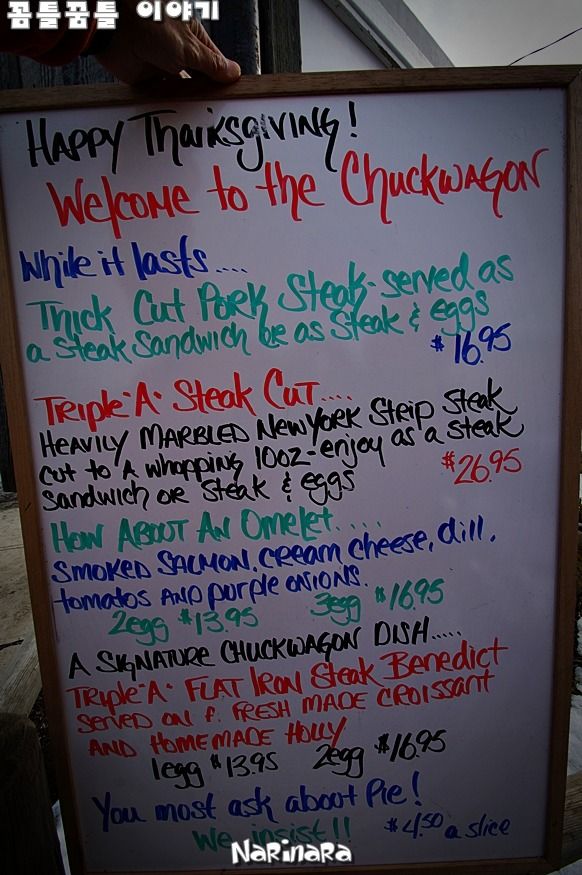 꼼틀꿈틀 이야기
HAPPY THANKSGIVING!
Welcome to the Chuckwagon
While it lasts....
Thick Cut Pork Steak-served as
a Steak Sandwich or as Steak & eggs
$16.95
Triple "A" Steak Cut....
HEAVILY MARBLED New York Strip Steak
cut to a whopping 10oz-enjoy as a steak
Sandwich or Steak & eggs
$26.95
How About An Omelet....
Smoked Salmon, cream cheese, dill,
tomatos and purple onions.
2egg $13.95 3egg $16.95
A Signature Chuckwagon Dish.....
Triple "A" Flat Iron Steak Benedict
served on f. fresh made croissant
and homemade holly
1egg $13.95 2egg $16.95
You most ask about Pie!
We insist!! $4.50 a slice
NaRinaRa